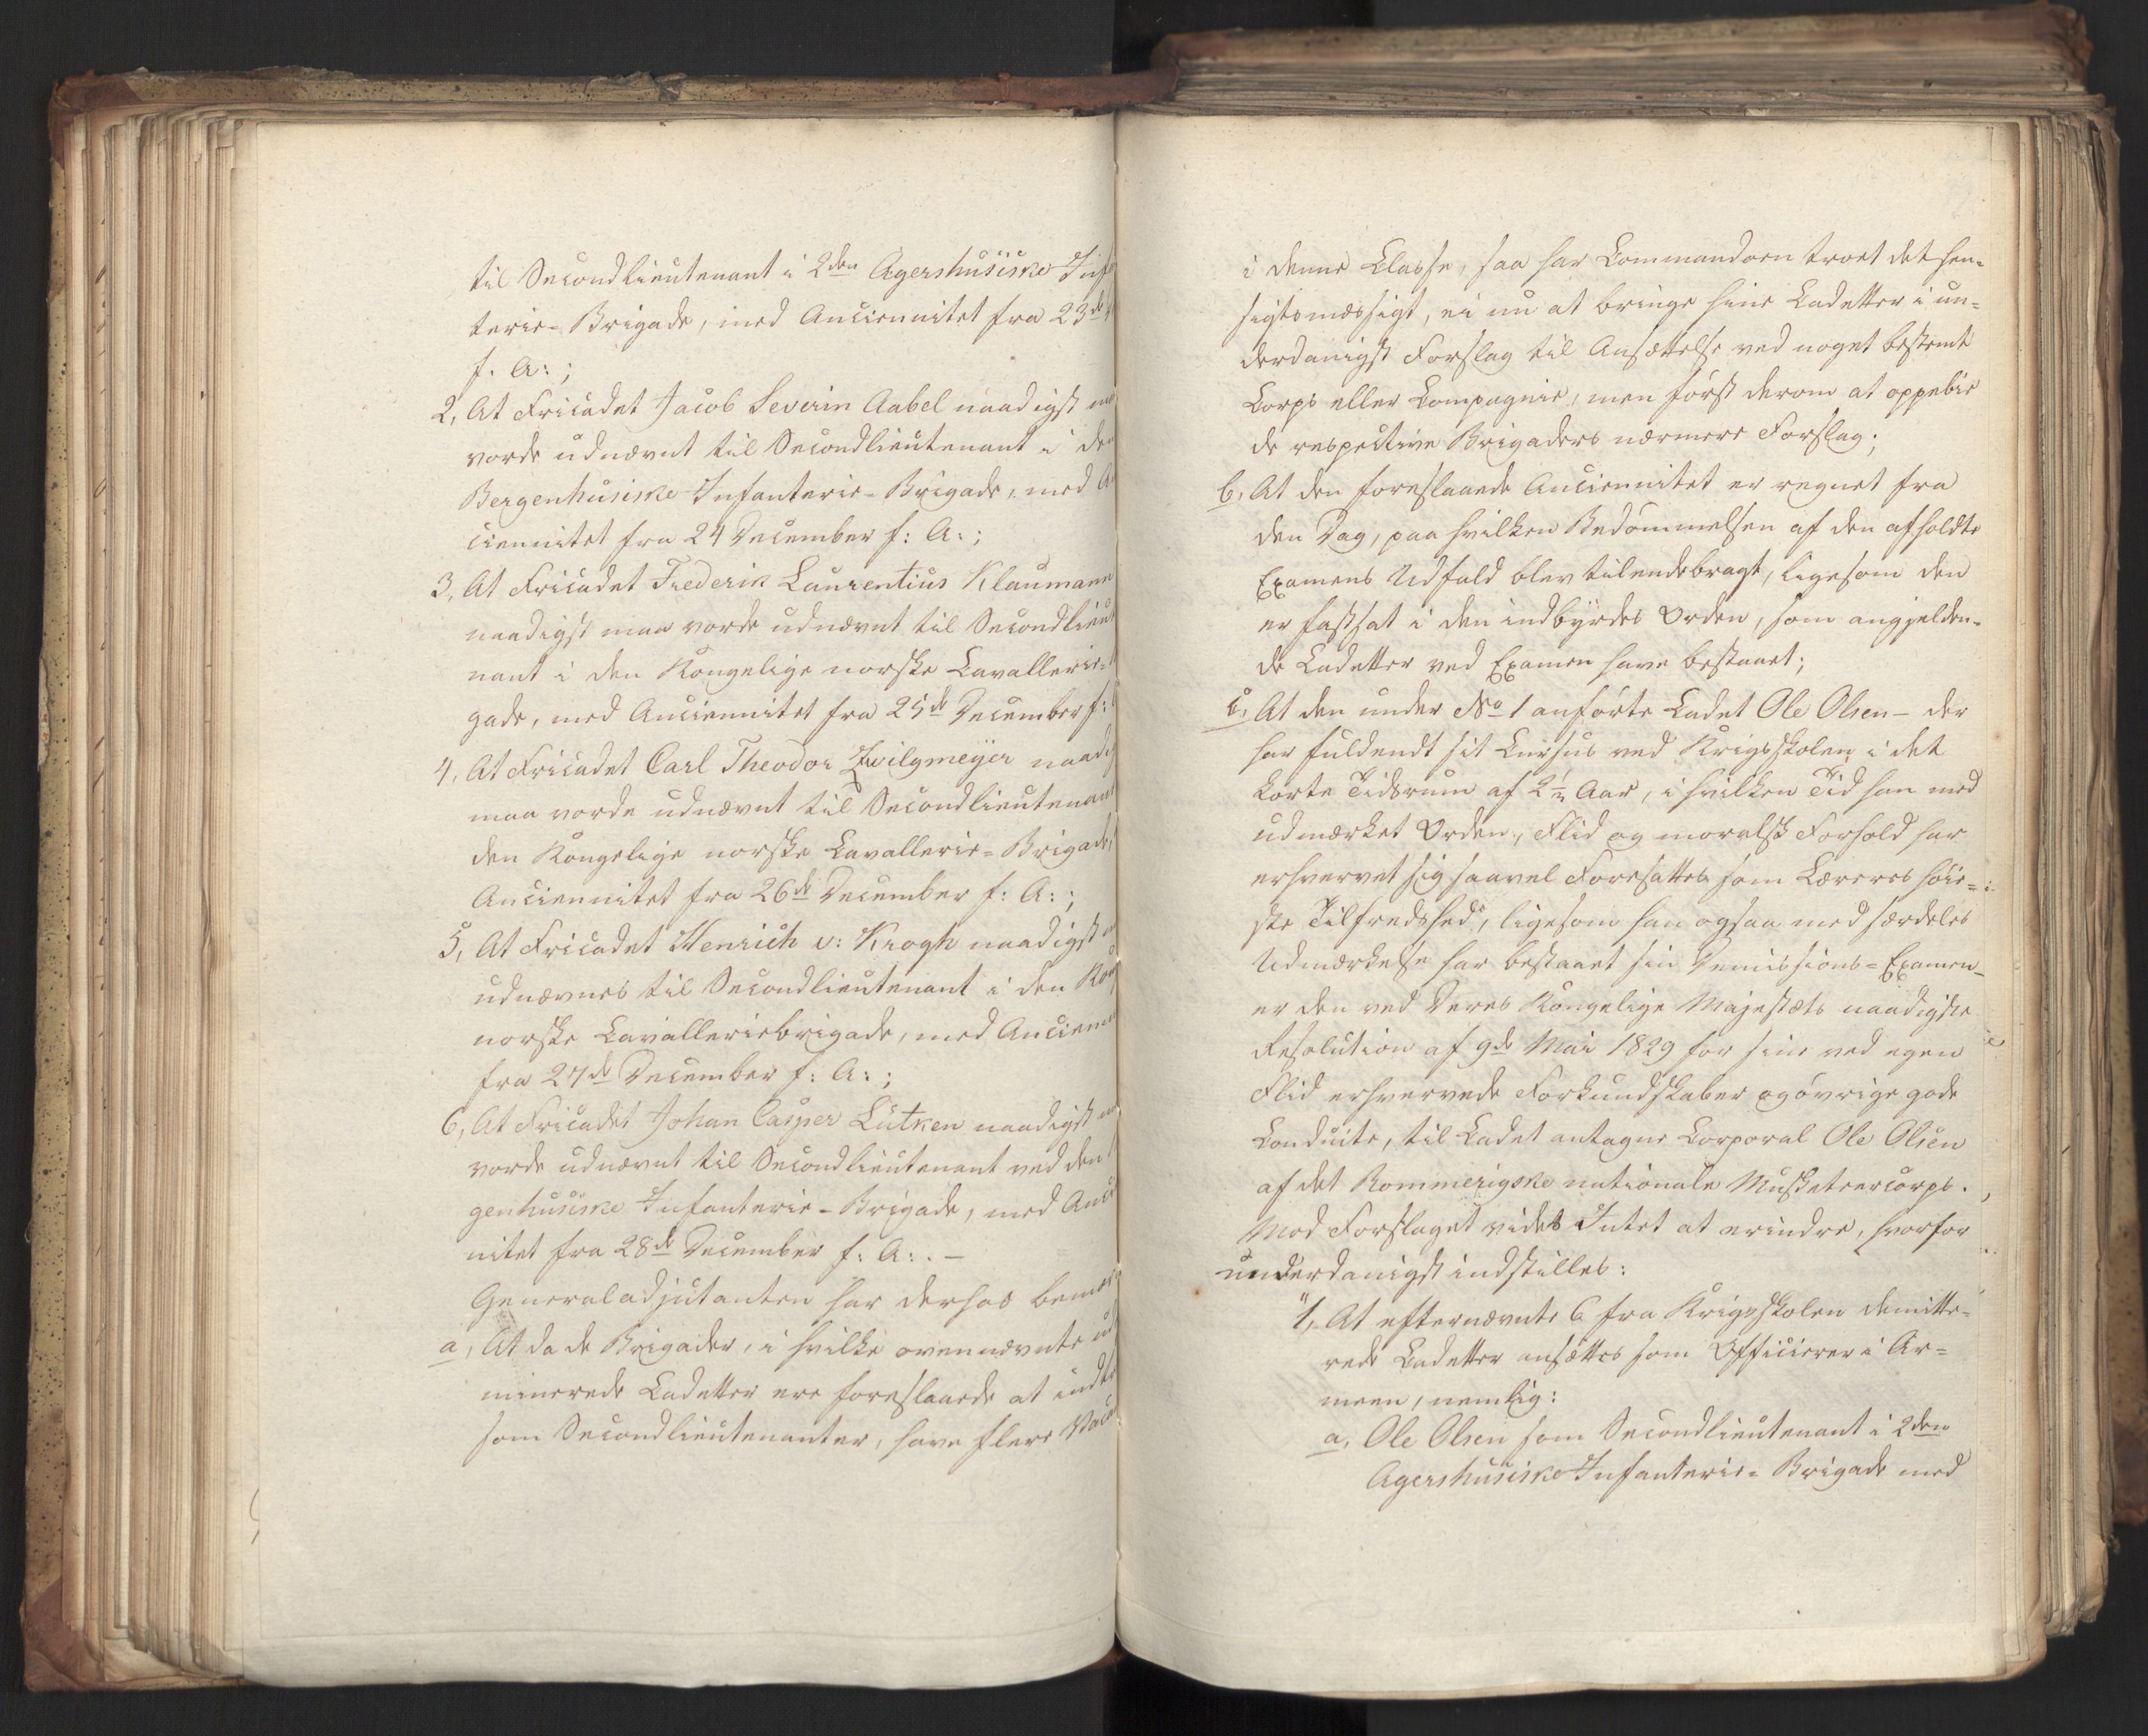 til Secondlieutenant i 2den Agershusiske Inf
terie-Brigade, med Anciennitet fra 23de
f. A:;
2, At Fricadet Jacob Severin Aabel naadigst
vorde udnævnt til Secondlieutenant i
Bergenhusiske Infanterie-Brigade, med A
ciennitet fra 24 December f: A:;
3, At Fricadet Frederik Laurentius Klaumann
naadigst maa vorde udnævnt til Secondlieut
nant i den Kongelige norske Cavallerie-
gade, med Anciennitet fra 25de December f:
4, At Fricadet Carl Theodor Zwilgmeyer naad
maa vorde udnævnt til Secondlieutenant
den Kongelige norske Cavallerie-Brigade,
Anciennitet fra 26de December f: A:;
5, At Fricadet Henrich v: Krogh naadigst
udnævnes til Secondlieutenant i den Kong
norske Cavalleriebrigade, med Ancienn
fra 27de December f: A:;
6, At Fricadet Johan Casper Lütken naadigst
vorde udnævnt til Secondlieutenant ved den
genhusiske Infanterie-Brigade, med Anci
nitet fra 28de December f: A:. -
Generaladjutanten har derhos bemær
a, At da de Brigader, i hvilke ovennævnte
minerede Cadetter ere foreslaaede at indtr
som Secondlieutenanter, have flere Vacan
i denne Classe, saa har Commandoen troet det hen-
sigtsmæssigt, ei nu at bringe hine Cadetter i un-
derdanigst Forslag til Ansættelse ved noget bestemt
Corps eller Compagnie, men først derom at oppebie
de respective Brigaders nærmere Forslag;
b, At den foreslaaede Anciennitet er regnet fra
den Dag, paa hvilken Bedømmelsen af den afholdte
Examens Udfald blev tilendebragt, ligesom den
er fastsat i den indbyrdes Orden, som angjelden-
de Cadetter ved Examen have bestaaet;
c, At den under No 1 anførte Cadet Ole Olsen - der
har fuldendt sit Cursus ved Krigsskolen i det
korte Tidsrum af 2½ Aar, i hvilken Tid han med
udmærket Orden, Flid og moralsk Forhold har
erhvervet sig saavel Foresattes som Læreres høie-
ste Tilfredshed, ligesom han ogsaa med særdeles
Udmærkelse har bestaaet sin Demissions-Examen -
er den ved Deres Kongelige Majestæts naadigste
Resolution af 9de Mai 1829 for sine ved egen
Flid erhvervede Forkundskaber og øvrige gode
Conduite, til Cadet antagne Corporal Ole Olsen
af det Rommerigske nationale Musketeercorps.
Mod Forslaget vides Intet at erindre, hvorfor
underdanigst indstilles:
"1, At efternævnte 6 fra Krigsskolen demitte-
rede Cadetter ansættes som Officierer i Ar-
meen, nemlig:
a, Ole Olsen som Secondlieutenant i 2den
Agershusiske Infanterie-Brigade med